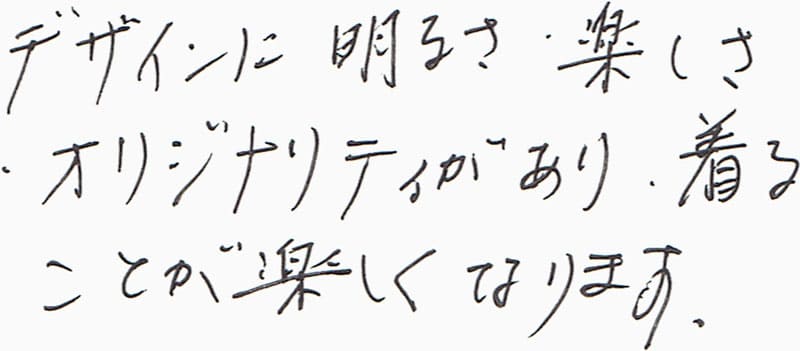 デザインに 明るさ・楽しさ
・オリジナリティがあり、着る
ことが楽しくなります。